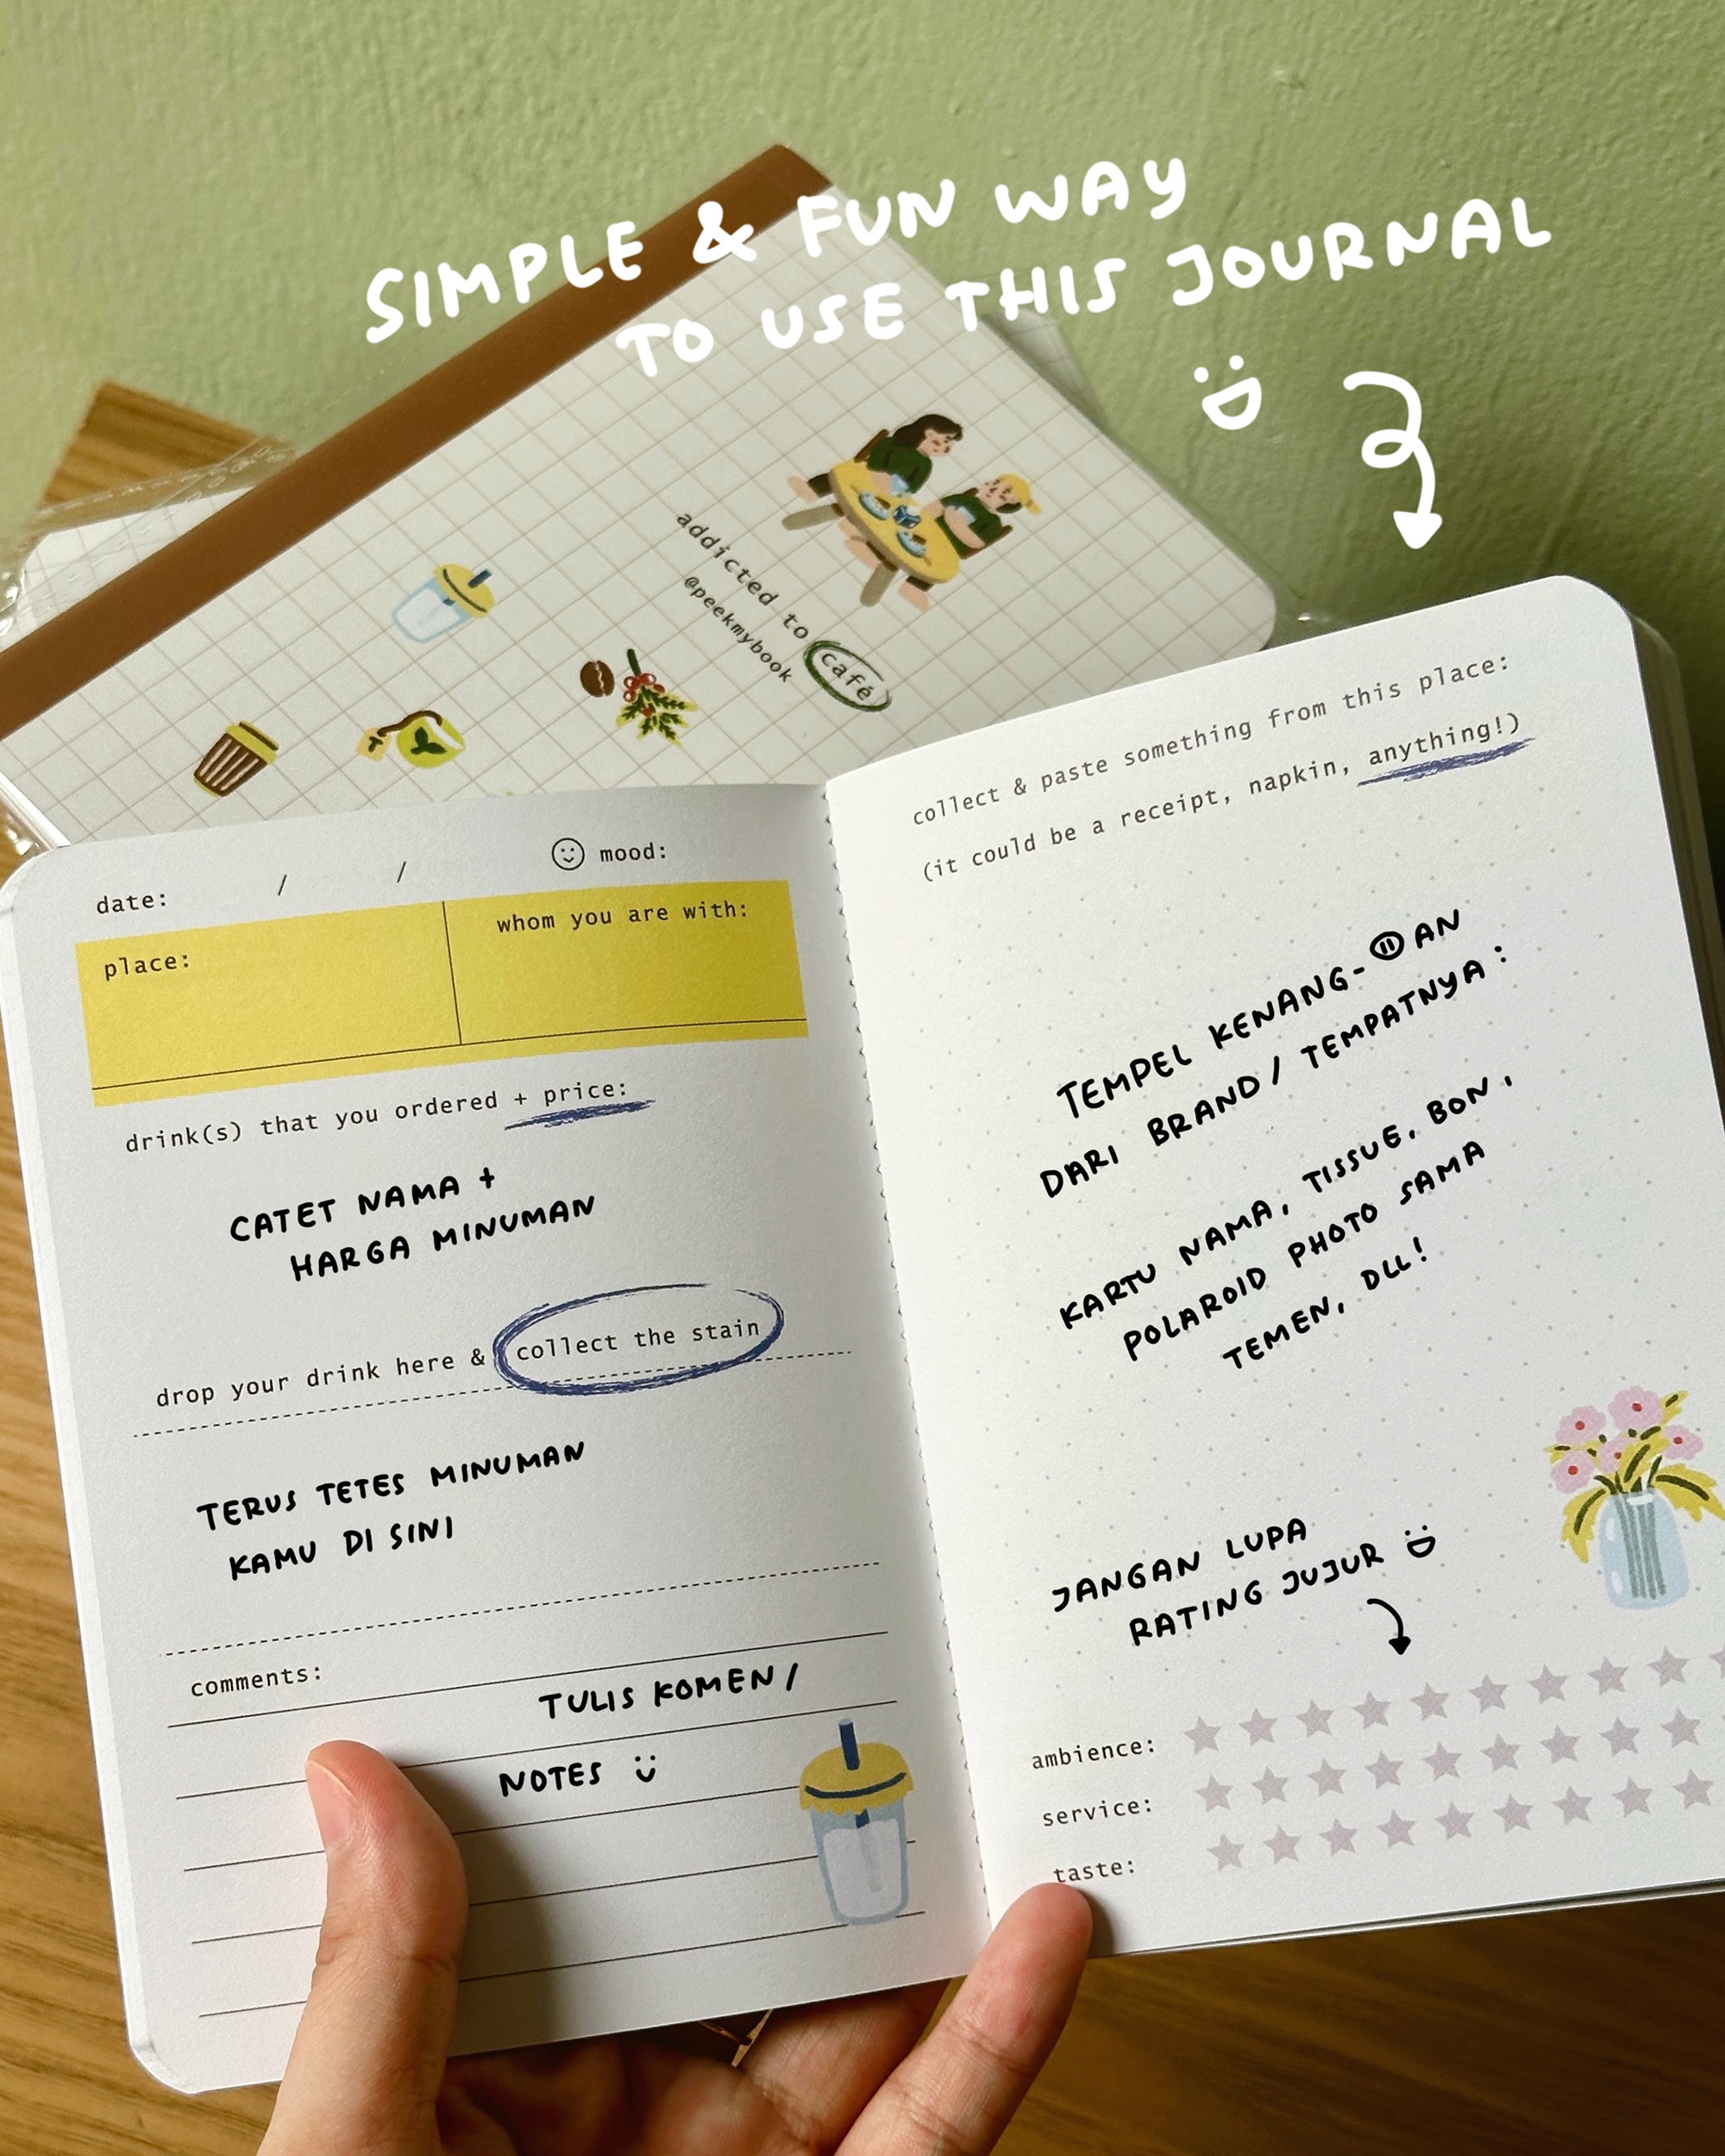 SIMPLE & FUN WAY
TO USE THIS JOURNAL
addicted to café
@peekmybook
date: / / mood:
place:
whom you are with:
drink(s) that you ordered + price:
CATET NAMA +
HARGA MINUMAN
drop your drink here & collect the stain
TERUS TETES MINUMAN
KAMU DI SINI
comments:
TULIS KOMEN /
NOTES
collect & paste something from this place:
(it could be a receipt, napkin, anything!)
TEMPEL KENANG-AN
DARI BRAND / TEMPATNYA :
KARTU NAMA, TISSUE, BON,
POLAROID PHOTO SAMA
TEMEN, DLL!
JANGAN LUPA
RATING JUJUR
ambience:
service:
taste: